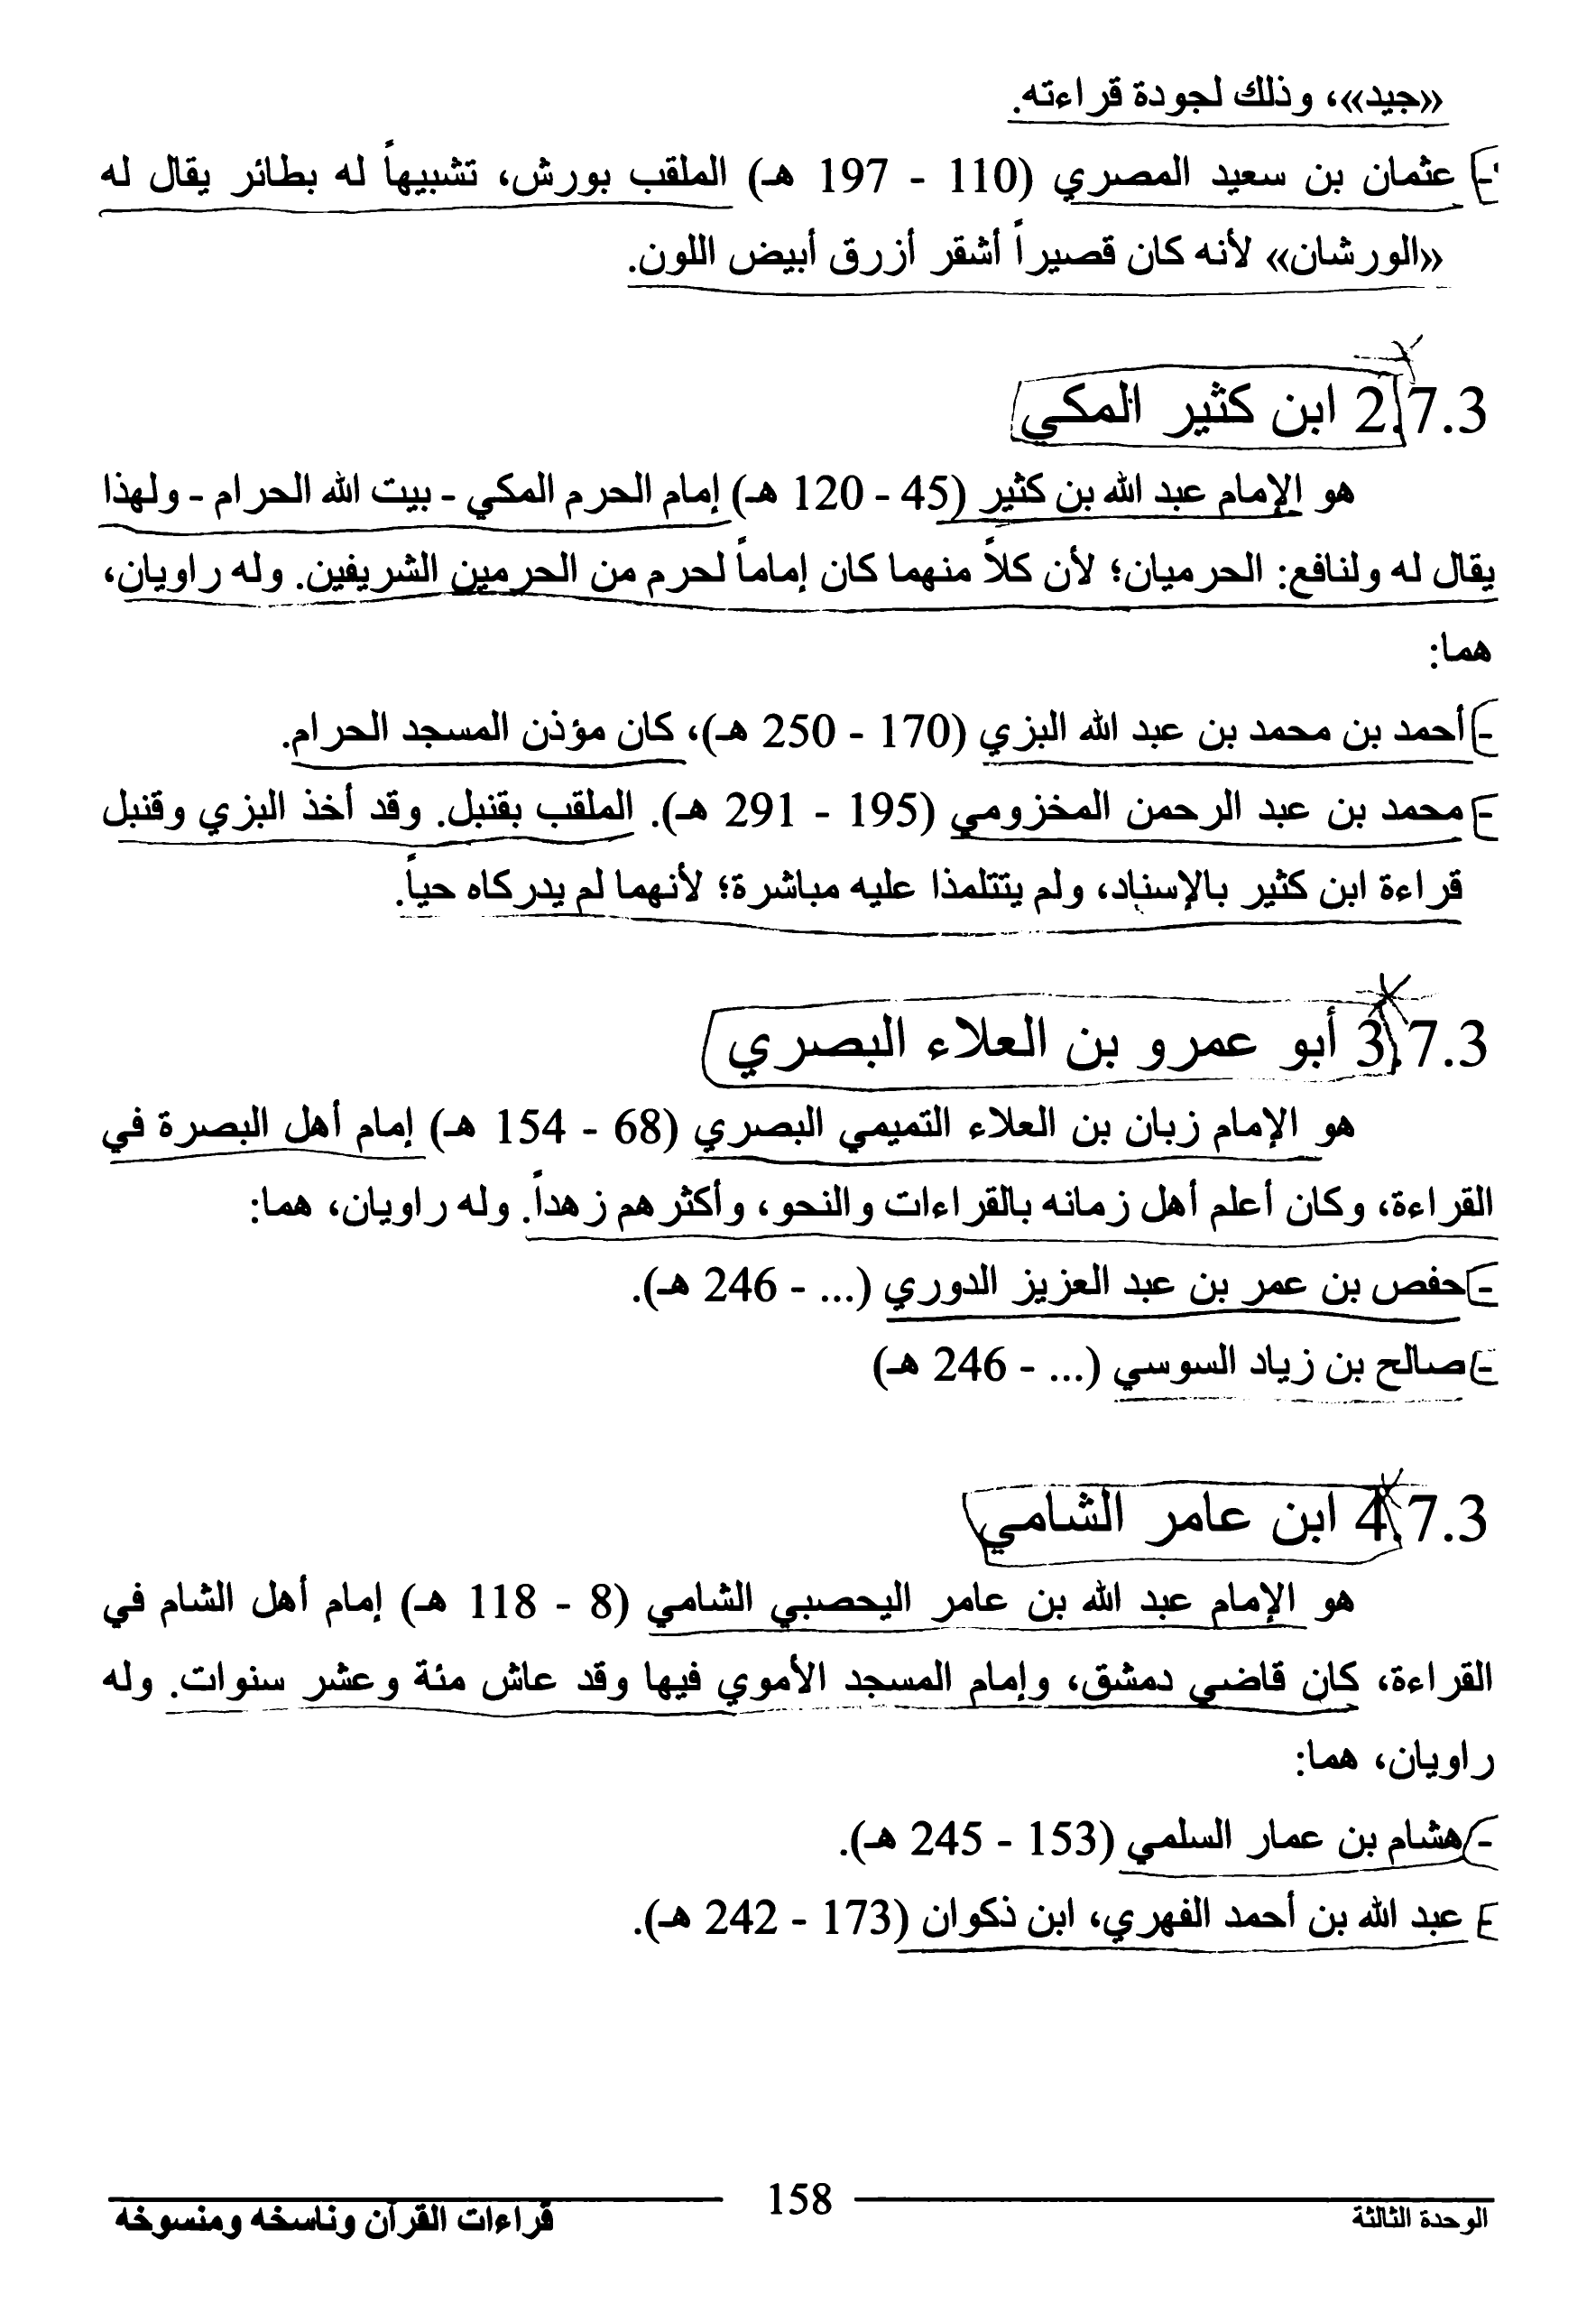 «جيد»، وذلك لجودة قراءته.
- عثمان بن سعيد المصري (110 - 197 هـ) الملقب بورش، تشبيهاً له بطائر يقال له
«الورشان» لأنه كان قصيراً أشقر أزرق أبيض اللون.
2.7.3 ابن كثير المكي
هو الإمام عبد الله بن كثير (45 - 120 هـ) إمام الحرم المكي - بيت الله الحرام - ولهذا
يقال له ولنافع: الحرميان؛ لأن كلاً منهما كان إماماً لحرم من الحرمين الشريفين. وله راويان،
هما:
- أحمد بن محمد بن عبد الله البزي (170 - 250 هـ)، كان مؤذن المسجد الحرام.
- محمد بن عبد الرحمن المخزومي (195 - 291 هـ). الملقب بقنبل. وقد أخذ البزي وقنبل
قراءة ابن كثير بالإسناد، ولم يتتلمذا عليه مباشرة؛ لأنهما لم يدركاه حياً.
3.7.3 أبو عمرو بن العلاء البصري
هو الإمام زبان بن العلاء التميمي البصري (68 - 154 هـ) إمام أهل البصرة في
القراءة، وكان أعلم أهل زمانه بالقراءات والنحو، وأكثرهم زهداً. وله راويان، هما:
- حفص بن عمر بن عبد العزيز الدوري (... - 246 هـ).
- صالح بن زياد السوسي (... - 246 هـ)
4.7.3 ابن عامر الشامي
هو الإمام عبد الله بن عامر اليحصبي الشامي (8 - 118 هـ) إمام أهل الشام في
القراءة، كان قاضي دمشق، وإمام المسجد الأموي فيها وقد عاش مئة وعشر سنوات. وله
راويان، هما:
- هشام بن عمار السلمي (153 - 245 هـ).
- عبد الله بن أحمد الفهري، ابن ذكوان (173 - 242 هـ).
الوحدة الثالثة 158 قراءات القرآن وناسخه ومنسوخه